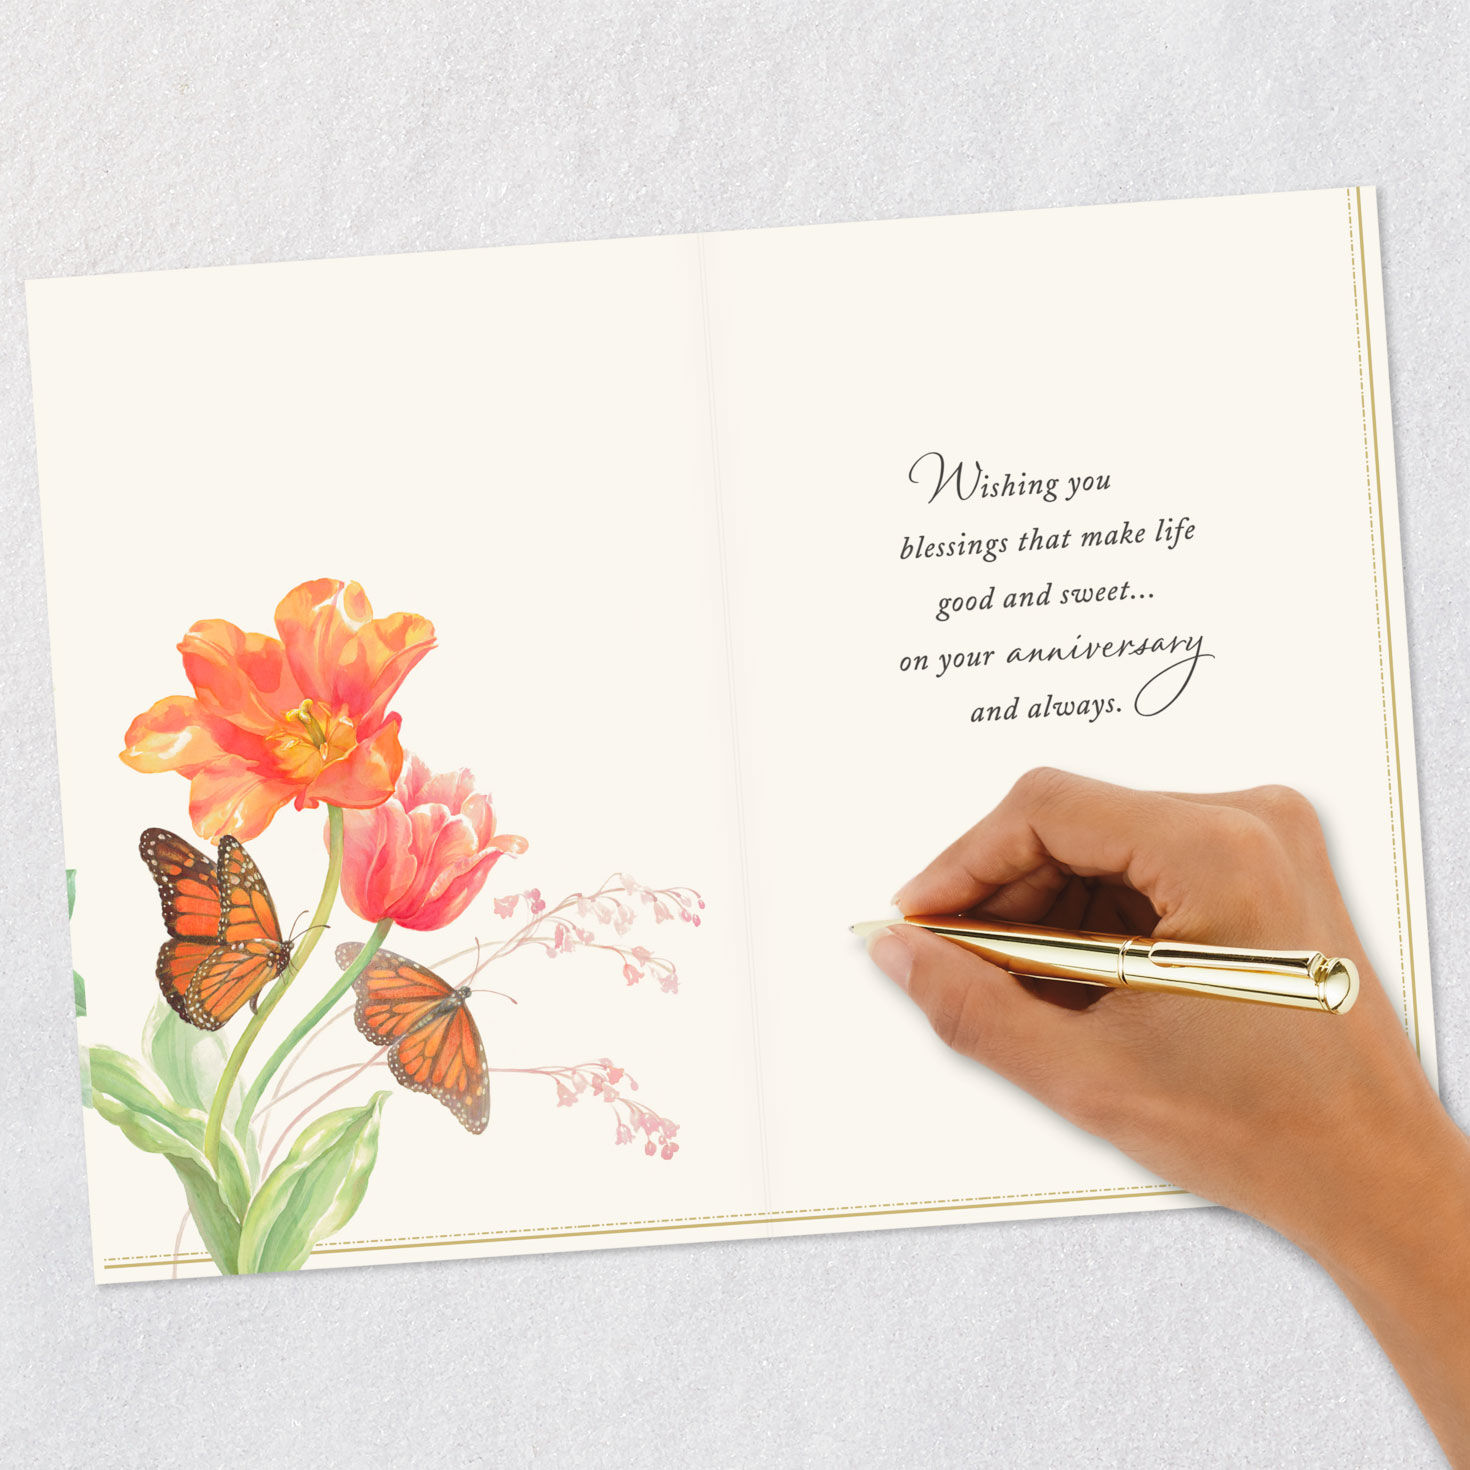 Wishing you
blessings that make life
good and sweet...
on your anniversary
and always.